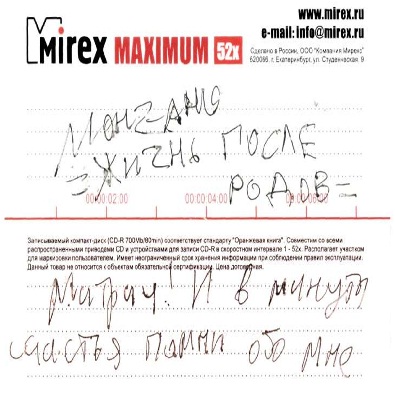 www.mirex.ru
e-mail: info@mirex.ru
Mirex MAXIMUM 52x
Сделано в России, ООО "Компания Мирекс"
620066, г. Екатеринбург, ул. Студенческая, 9
МОНZАНО
=ЖИЗНЬ ПОСЛЕ
РОДОВ=
00:00:02.00 00:00:04.00 00:00:06.00
Записываемый компакт-диск (CD-R 700Mb/80min) соответствует стандарту "Оранжевая книга". Совместим со всеми
распространенными приводами CD и устройствами для записи CD-R в скоростном интервале 1 - 52x. Располагает участком
для маркировки пользователем. Имеет неограниченный срок хранения информации при соблюдении правил эксплуатации.
Данный товар не относится к объектам обязательной сертификации. Цена договорная.
! И в минуты
счастья помни обо мне